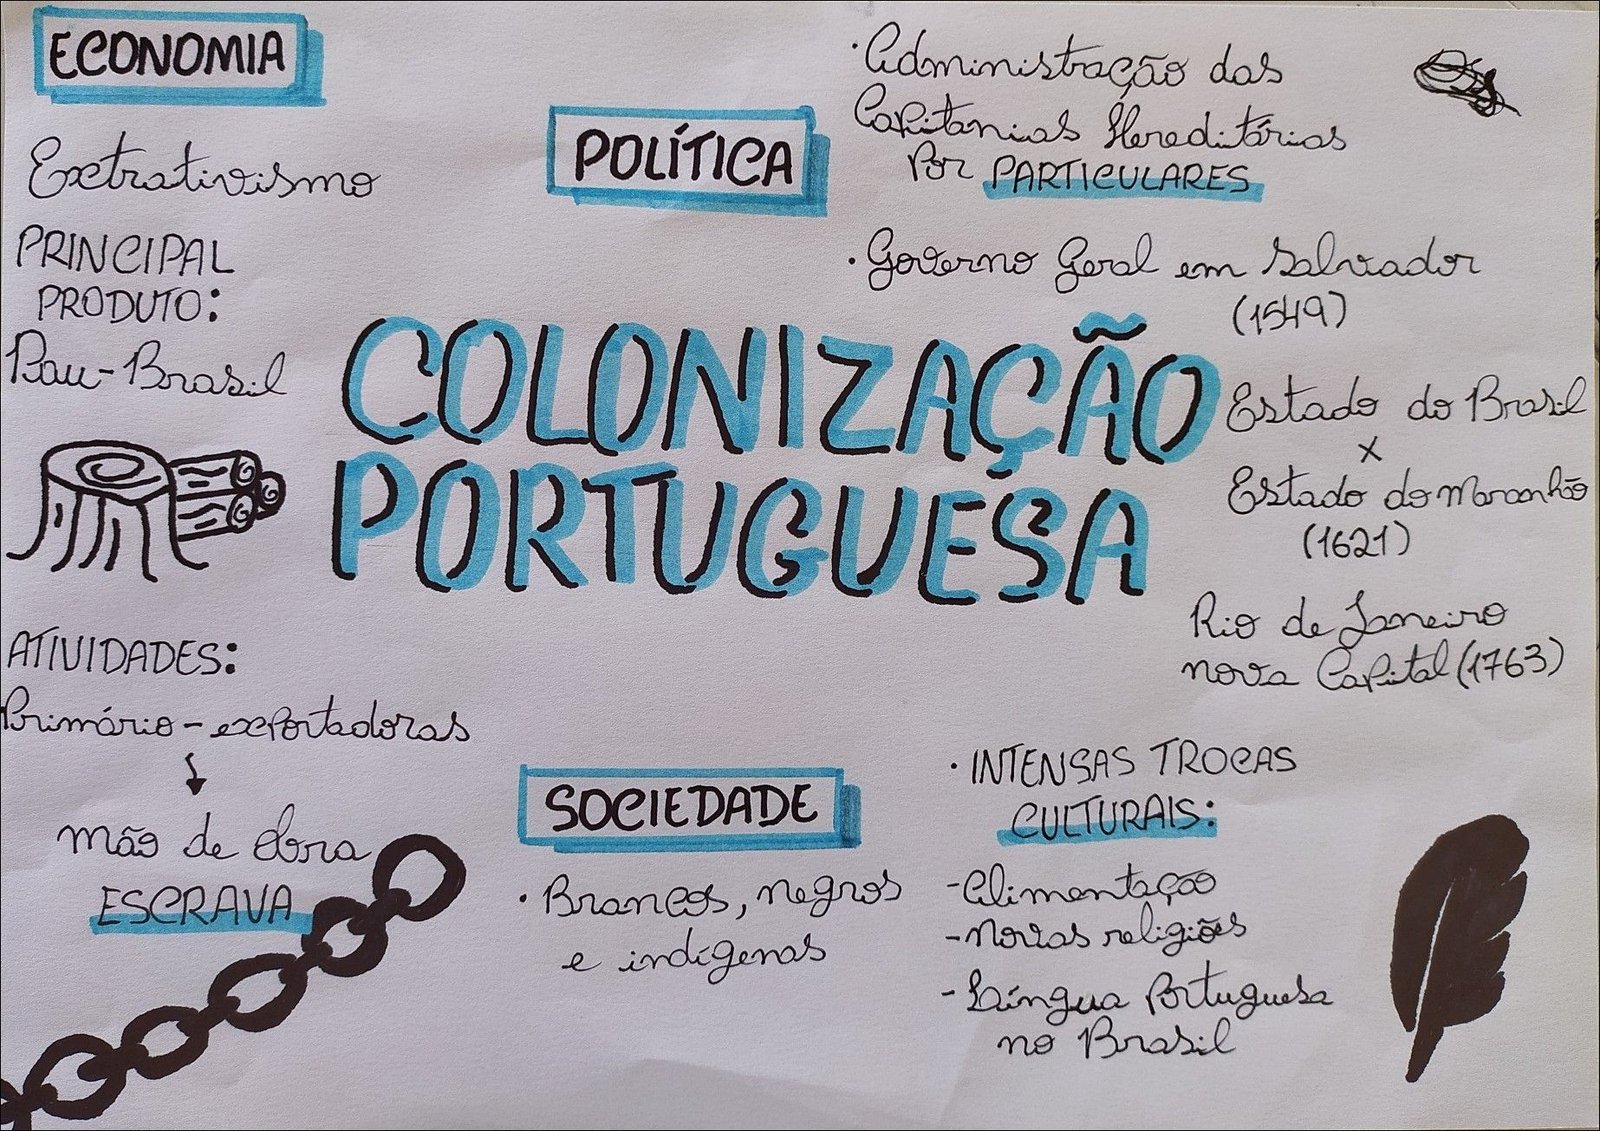 ECONOMIA
Extrativismo
PRINCIPAL
PRODUTO:
Pau-Brasil
ATIVIDADES:
Primário-exportadoras
mão de obra
ESCRAVA
POLÍTICA
· Administração das
Capitanias Hereditárias
Por PARTICULARES
· Governo Geral em Salvador
(1549)
Estado do Brasil
x
Estado do Maranhão
(1621)
Rio de Janeiro
nova Capital (1763)
COLONIZAÇÃO
PORTUGUESA
SOCIEDADE
· Brancos, negros
e indígenas
· INTENSAS TROCAS
CULTURAIS:
- Alimentação
- Novas religiões
- Língua Portuguesa
no Brasil